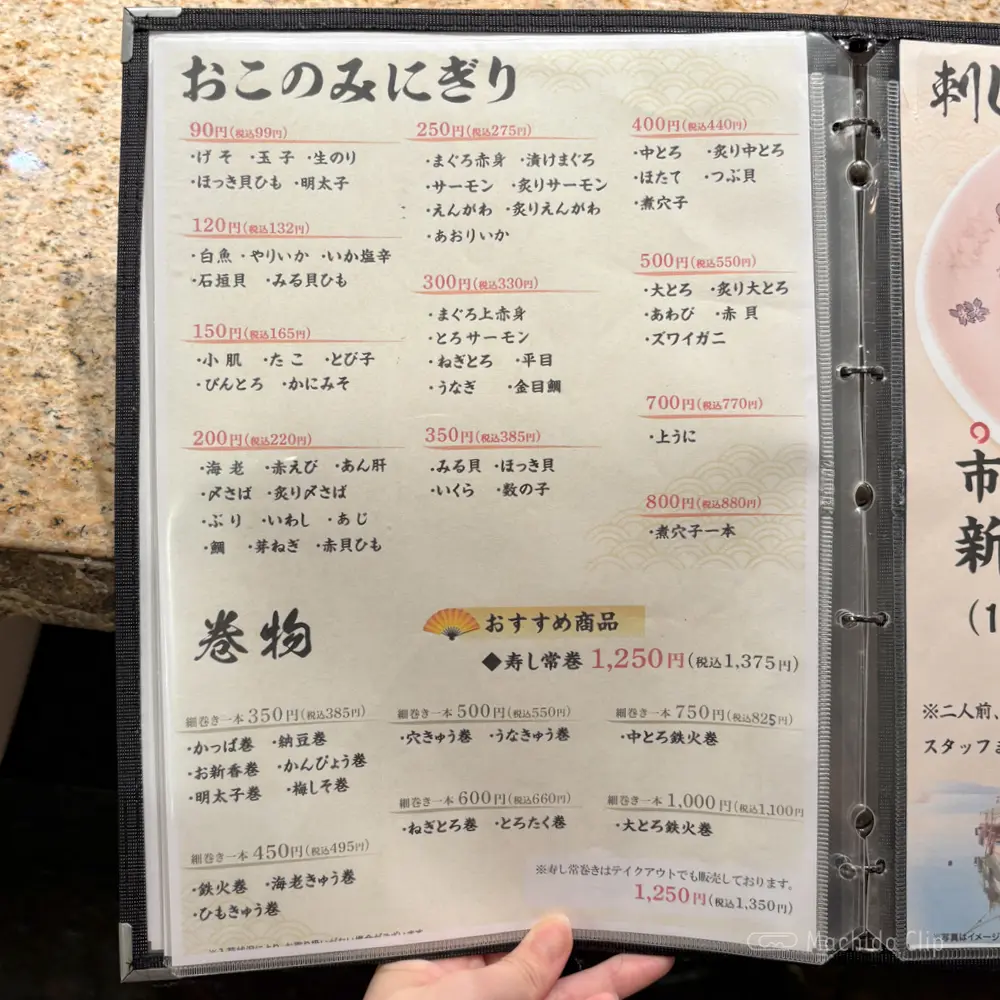 おこのみにぎり
90円(税込99円)
・げそ ・玉子 ・生のり
・ほっき貝ひも ・明太子
120円(税込132円)
・白魚 ・やりいか ・いか塩辛
・石垣貝 ・みる貝ひも
150円(税込165円)
・小肌 ・たこ ・とび子
・びんとろ ・かにみそ
200円(税込220円)
・海老 ・赤えび ・あん肝
・〆さば ・炙り〆さば
・ぶり ・いわし ・あじ
・鯛 ・芽ねぎ ・赤貝ひも
250円(税込275円)
・まぐろ赤身 ・漬けまぐろ
・サーモン ・炙りサーモン
・えんがわ ・炙りえんがわ
・あおりいか
300円(税込330円)
・まぐろ上赤身
・とろサーモン
・ねぎとろ ・平目
・うなぎ ・金目鯛
350円(税込385円)
・みる貝 ・ほっき貝
・いくら ・数の子
400円(税込440円)
・中とろ ・炙り中とろ
・ほたて ・つぶ貝
・煮穴子
500円(税込550円)
・大とろ ・炙り大とろ
・あわび ・赤貝
・ズワイガニ
700円(税込770円)
・上うに
800円(税込880円)
・煮穴子一本
巻物
おすすめ商品
◆寿し常巻 1,250円(税込1,375円)
細巻き一本 350円(税込385円)
・かっぱ巻 ・納豆巻
・お新香巻 ・かんぴょう巻
・明太子巻 ・梅しそ巻
細巻き一本 450円(税込495円)
・鉄火巻 ・海老きゅう巻
・ひもきゅう巻
細巻き一本 500円(税込550円)
・穴きゅう巻 ・うなきゅう巻
細巻き一本 600円(税込660円)
・ねぎとろ巻 ・とろたく巻
細巻き一本 750円(税込825円)
・中とろ鉄火巻
細巻き一本 1,000円(税込1,100円
・大とろ鉄火巻
※寿し常巻きはテイクアウトでも販売しております。
1,250円(税込1,350円)
刺し
市
新
(1
※二人前、
スタッフま
写真はイメージ
Machida Clip